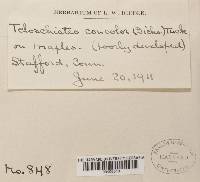 HERBARIUM OF L. W. RIDDLE.
Teloschistes concolor (Dicks) Tuck
on maples. (poorly developed)
Stafford, Conn.
June 20, 1911
No. 848